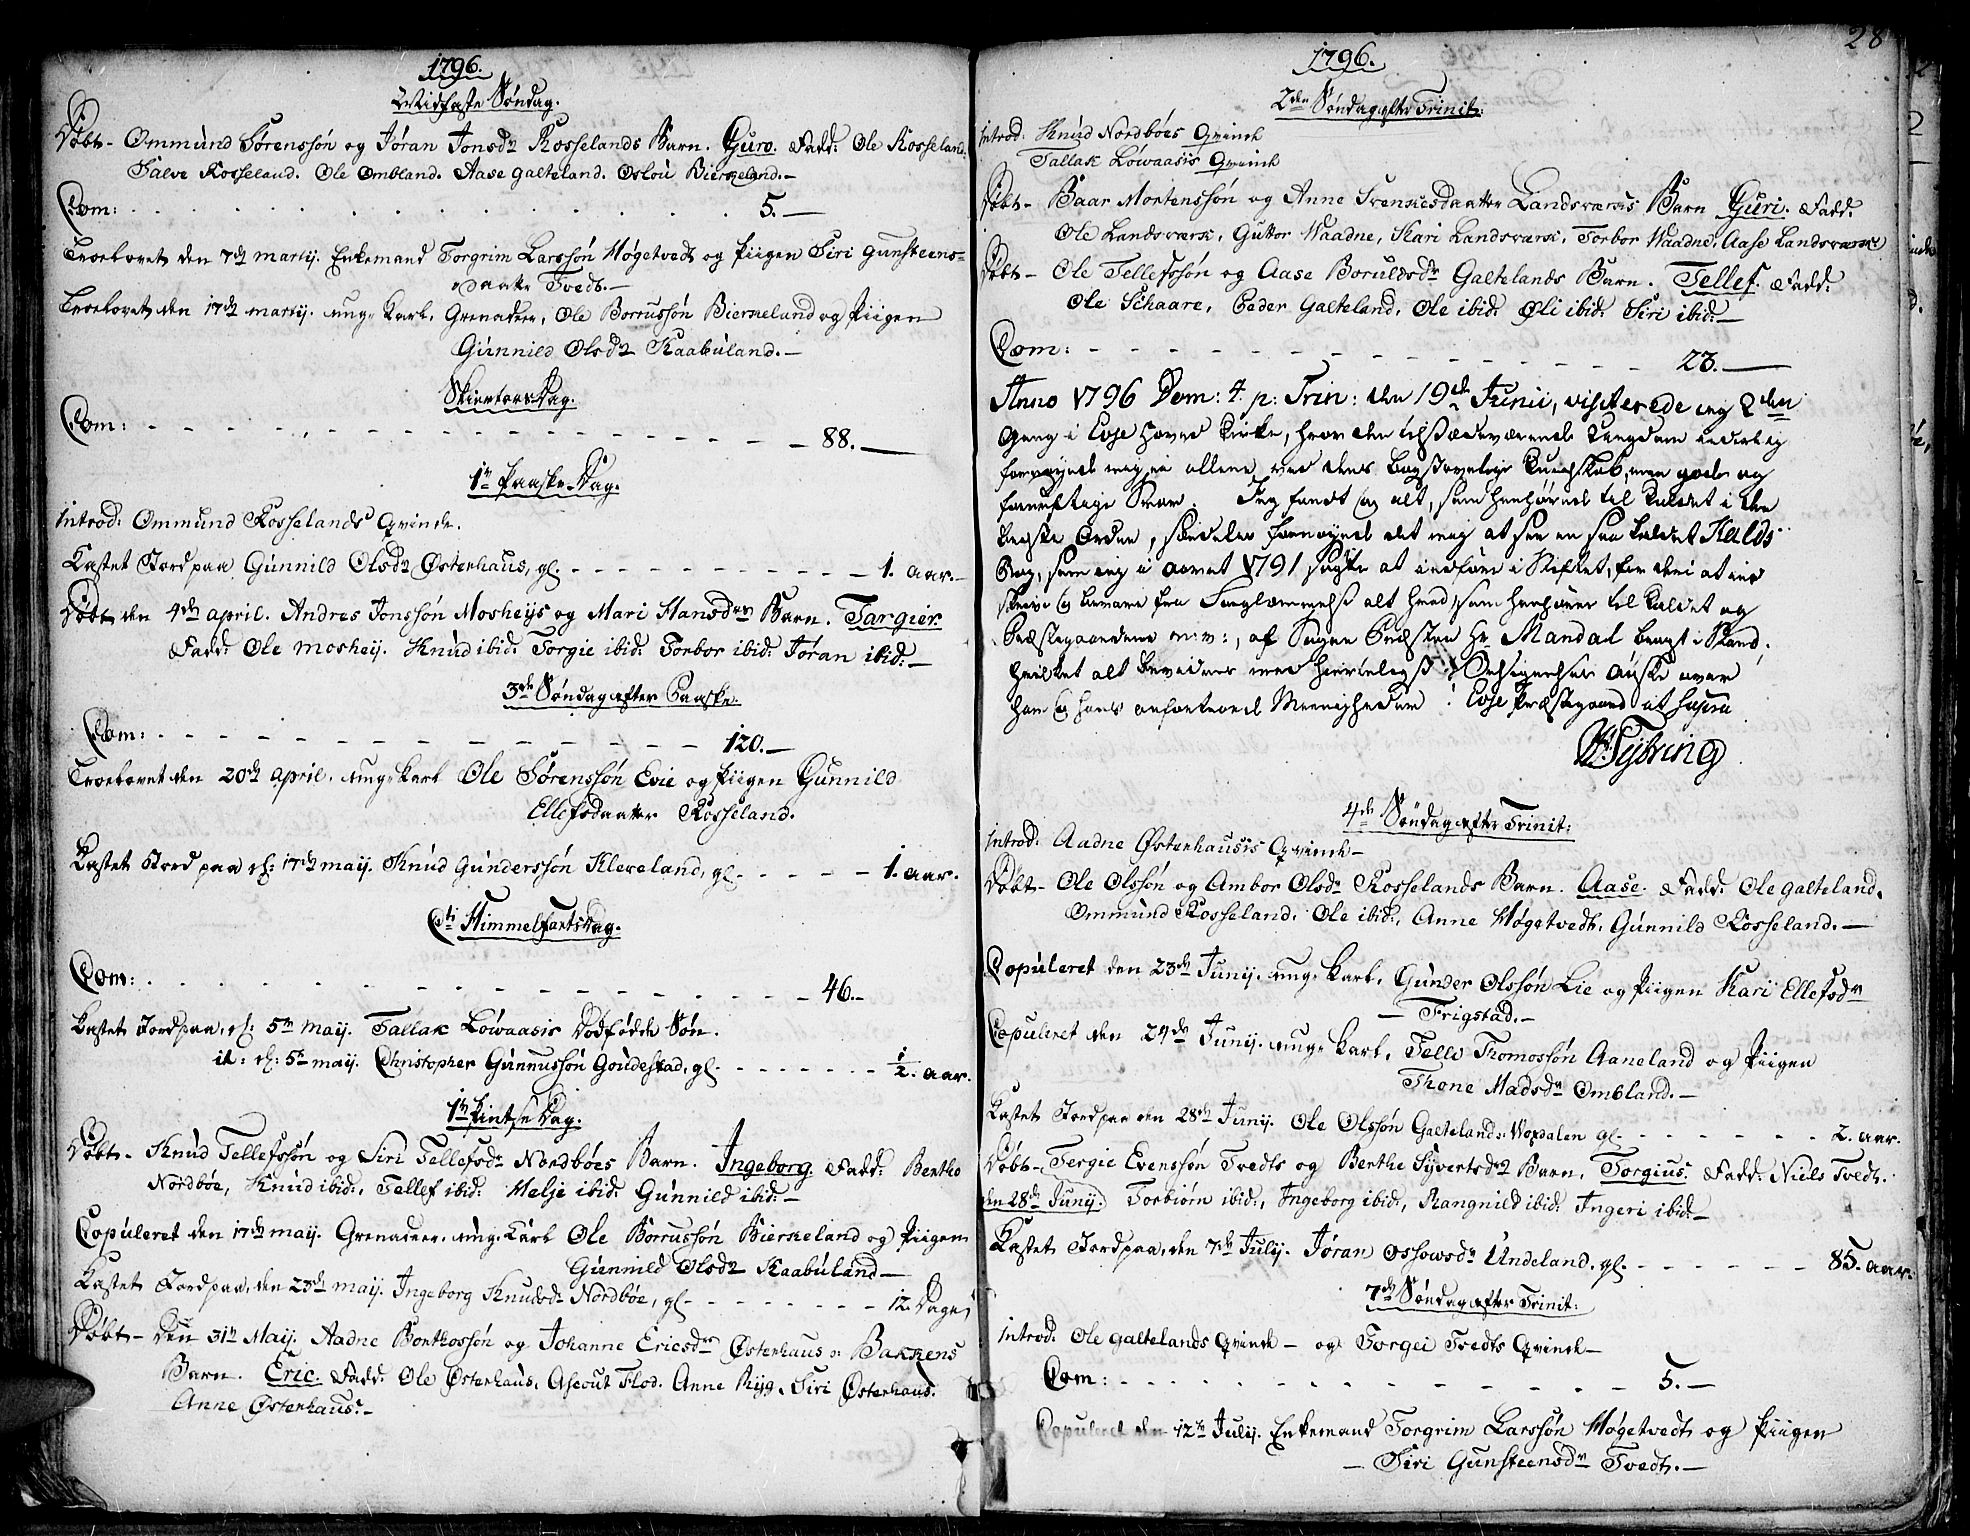 1796.
Midfaste Søndag.
Døbt - Ommund Sørenssøn og Jøran Jonsdr Rosselands Barn. Guro. Fadd: Ole Rosseland.
Salve Rosseland. Ole Ombland. Aase galteland. Oslou Bierkeland.-
Com: 5.-
Troelovet den 7de martij. Enkemand Torgrim Larssøn Høgetvedt og Piigen Siri Gunsteens=
daatter Tvedt.-
Troelovet den 17de martij. unge Karl, Grenadeer, Ole Borrussøn Bierkeland og Piigen
Gunnild Olsdr Kaabuland.-
Skiertorsdag.
Com: 88.-
1ste Paaske Dag.
introd: Ommund Rosselands Qvinde.
Kastet Jord paa Gunnild Olsdr Østerhaus, gl. 1. aar.-
Døbt den 4de april. Andres Jonssøn Mosheys og Mari Hansdr Barn. Targier.
Fadd: Ole moshey. Knud ibid: Torgie ibid: Torbor ibid: Jøran ibid:-
3de Søndag efter Paaske.
Com: 120.-
Troelovet den 20de april. unge Karl Ole Sørenssøn Evie og Piigen Gunnild
Ellefsdaatter Rosseland.
Kastet Jord paa d: 17de maij. Knud Gunderssøn Kleveland, gl. 1. aar.
Chi Himmelfarts Dag.
Com: 46.-
Kastet Jord paa, d: 5te maij. Tallak Lowaasis Dødfødde Søn.
it: d: 5te maij. Christopher Gunnussøn Goudestad, gl. 1/2. aar.
1ste Pintse Dag.
Døbt - Knud Tellefssøn og Siri Tellefsdr Nordbøes Barn. Ingeborg. Fadd: Bertho
Nordbøe, Knud ibid:, Tellef ibid: Helje ibid: Gunnild ibid:-
Copuleret den 17de maij. Grenadeer. unge Karl Ole Borrussøn Bierkeland og Piigen
Gunnild Olsdr Kaabuland-
Kastet Jord paa, den 23de maij. Ingeborg Knudsdr Nordbøe, gl- 12. Dage,
Døbt - Den 31te Maij. Aadne Bonthossøn og Johanne Ericsdr Østerhaus = Bakkens
Barn. Eric. Fadd. Ole Østerhaus, Ascout Flod. Anne Ryg. Siri Østerhaus.
Anne Østerhaus.-
28
1796.
2den Søndag efter Trinit:
introd: Knud Nordbøes Qvinde
Tallak Lowaasis Qvinde
Døbt - Baar Mortenssøn og Anne Svenkesdaatter Landsværks Barn Guri. Fadd.
Ole Landsværk, Guttor Waadne, Kari Landsværk, Torbor Waadne, Aase Landsværk
Døbt - Ole Tellefssøn og Aase Boruldsdr Galtelands Barn. Tellef. Fadd:
Ole Schaare, Peder Galteland, Ole ibid: Øli ibid: Siri ibid:-
Com: 23.-
Anno 1796 Dom: 4. p: Trin: den 19de Junii, visiterede jeg 2den
Gang i Evje Hoved Kirke, hvor den tilstædeværende Ungdom inderlig
fornøyede mig ei allene ved dens bogstavelige Kundskab, men gode og
fornuftige Svar. Jeg fandt og alt, som henhører til Kaldet i den
beste Orden, særdeles fornøyede det mig at see en saa kaldet Kalds-
Bog, som jeg i aaret 1791 søgte at indføre i Stiftet, for deri at ind
skrive og bevare fra Forglæmmelse alt hvad, som henhører til Kaldet og
Præstegaardene m: v:, af Sogne Præsten Hr Mandal bragt i Stand.
hvilket alt bevidnes med hierteligst Velsignelses ønske over
ham og hans anfortroede Meenigheder! Evje Præstegaard ut supra
Sybring
4de Søndag efter Trinit:
introd: Aadne Østerhausis Qvinde-
Døbt - Ole Olssøn og Ambor Olsdr Rosselands Barn. Aase. Fadd: Ole galteland.
Ommund Rosseland. Ole ibid:, Anne Høgetvedt, Gunnild Rosseland.-
Copuleret den 23de Junij. unge Karl. Gunder Olssøn Lie og Piigen Kari Ellefsdr
- Frigstad.-
Copuleret den 24de Junij. unge Karl, Telle Thomossøn Aaneland og Piigen
Thone Madsdr Ombland.-
Kastet Jord paa den 28de Junij. Ole Olssøn Galtelands= Voxdalen gl. 2. aar.
Døbt - Tergie Evenssøn Tvedts og Berthe Syvertsdr Barn, Torgius. Fadd: Niels Tvedt.
den 28de Junij. Torbiørn ibid:, Ingeborg ibid:, Rangnild ibid: Ingeri ibid:-
Kastet Jord paa, den 7de Julij. Jøran Ossowsdr Undeland, gl. 85. aar.
7de Søndag efter Trinit:
introd: Ole galtelands Qvinde - og Torgei Tvedts Qvinde-
Com: 5.-
Copuleret den 12te Julij. Enkemand Torgrim Larssøn Høgetvedt og Piigen
- Siri Gunsteensdr Tvedt.-